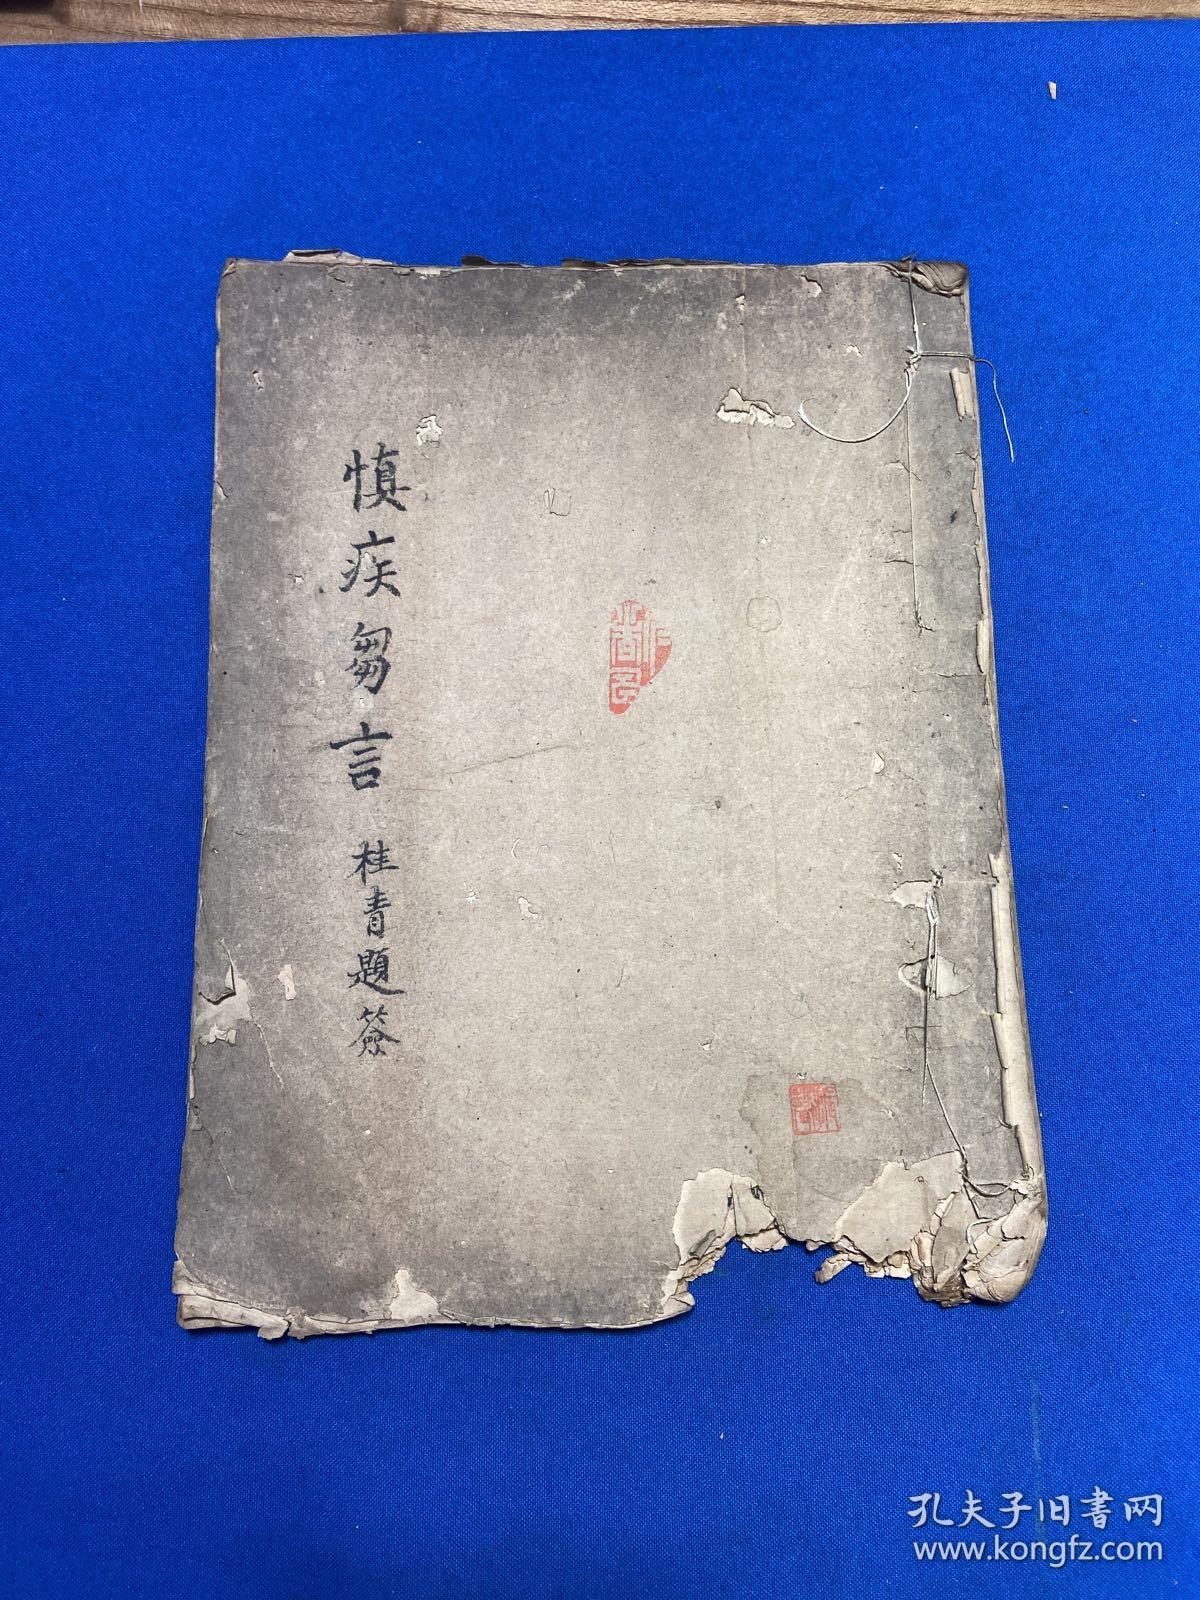 慎疾芻言
桂青題簽
孔夫子旧书网
www.kongfz.com